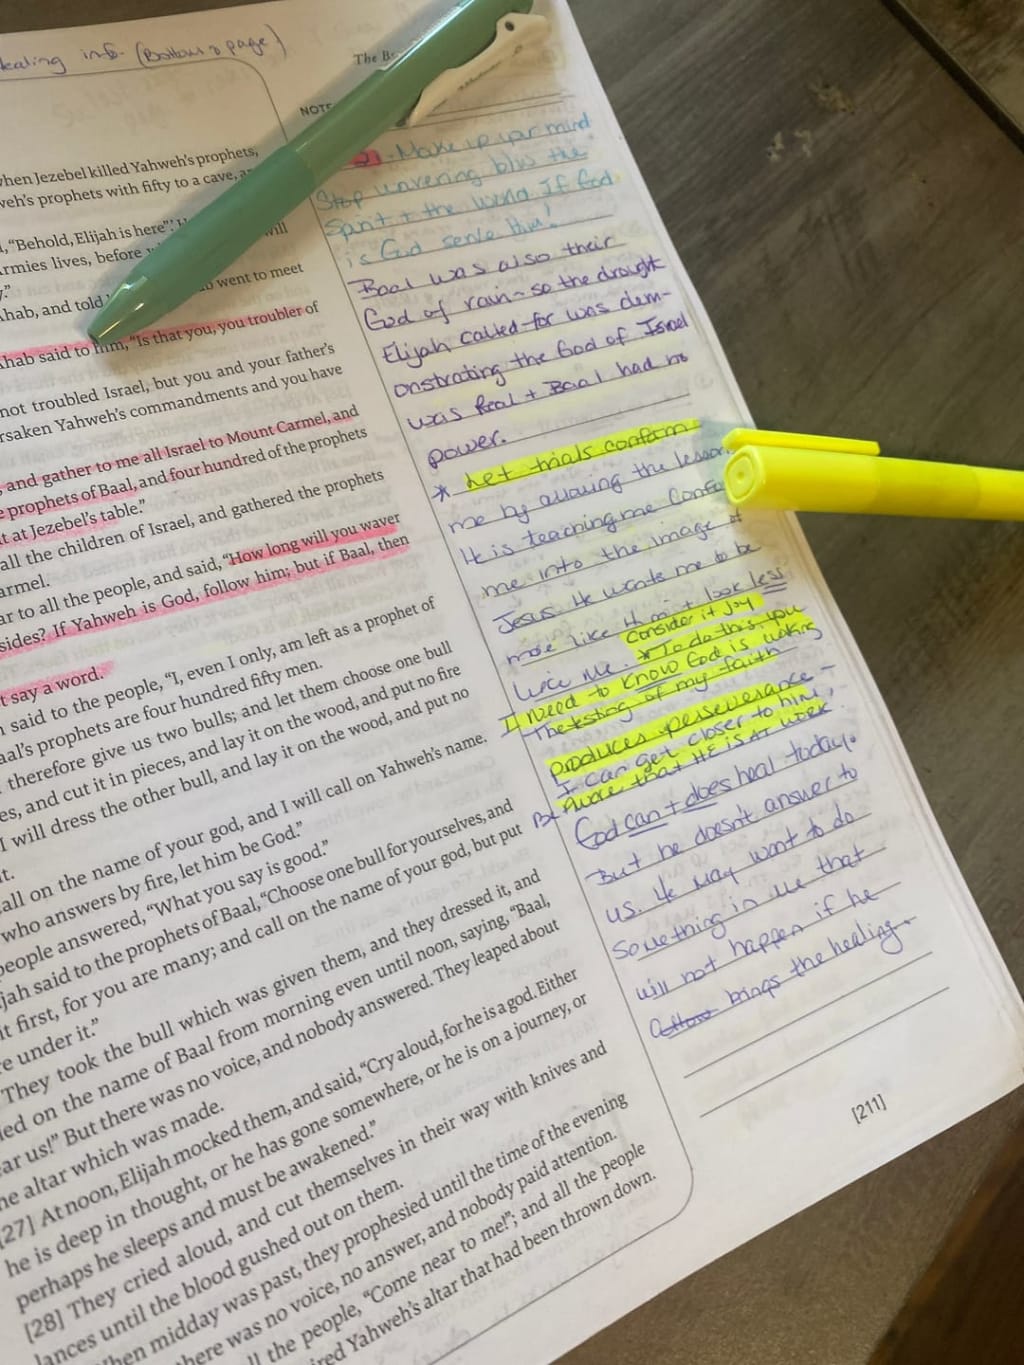 ealing info (Bottom of page)
The B
NOTE
when Jezebel killed Yahweh's prophets,
weh's prophets with fifty to a cave, a
, "Behold, Elijah is here"'
will
Armies lives, before
y."
went to meet
Ahab, and told
Ahab said to him, "Is that you, you troubler of
not troubled Israel, but you and your father's
rsaken Yahweh's commandments and you have
, and gather to me all Israel to Mount Carmel, and
e prophets of Baal, and four hundred of the prophets
at at Jezebel's table."
all the children of Israel, and gathered the prophets
armel.
ar to all the people, and said, "How long will you waver
sides? If Yahweh is God, follow him; but if Baal, then
t say a word.
n said to the people, "I, even I only, am left as a prophet of
aal's prophets are four hundred fifty men.
therefore give us two bulls; and let them choose one bull
es, and cut it in pieces, and lay it on the wood, and put no fire
I will dress the other bull, and lay it on the wood, and put no
it.
call on the name of your god, and I will call on Yahweh's name.
who answers by fire, let him be God."
people answered, "What you say is good."
ijah said to the prophets of Baal, "Choose one bull for yourselves, and
it first, for you are many; and call on the name of your god, but put
e under it."
They took the bull which was given them, and they dressed it, and
led on the name of Baal from morning even until noon, saying, "Baal,
ar us!" But there was no voice, and nobody answered. They leaped about
he altar which was made.
[27] At noon, Elijah mocked them, and said, "Cry aloud, for he is a god. Either
he is deep in thought, or he has gone somewhere, or he is on a journey, or
perhaps he sleeps and must be awakened."
[28] They cried aloud, and cut themselves in their way with knives and
lances until the blood gushed out on them.
hen midday was past, they prophesied until the time of the evening
here was no voice, no answer, and nobody paid attention.
ll the people, "Come near to me!"; and all the people
ired Yahweh's altar that had been thrown down.
- Make up your mind
Stop wavering b/w the
Spirit + the world. If God
is God serve Him!
Baal was also their
God of rain - so the drought
Elijah called for was dem-
onstrating the God of Israel
was Real + Baal had no
power.
* Let trials conform
me by allowing the lesson
It is teaching me Confo
me into the image of
Jesus. He wants me to be
more like Him + look less
like me. Consider it Joy
* To do this, you
I need to know God is working
The testing of my faith
produces perseverance -
I can get closer to him,
Be Aware that HE IS AT WORK.
God can + does heal today.
But he doesn't answer to
us. He may want to do
something in me that
will not happen if he
brings the healing.
[211]